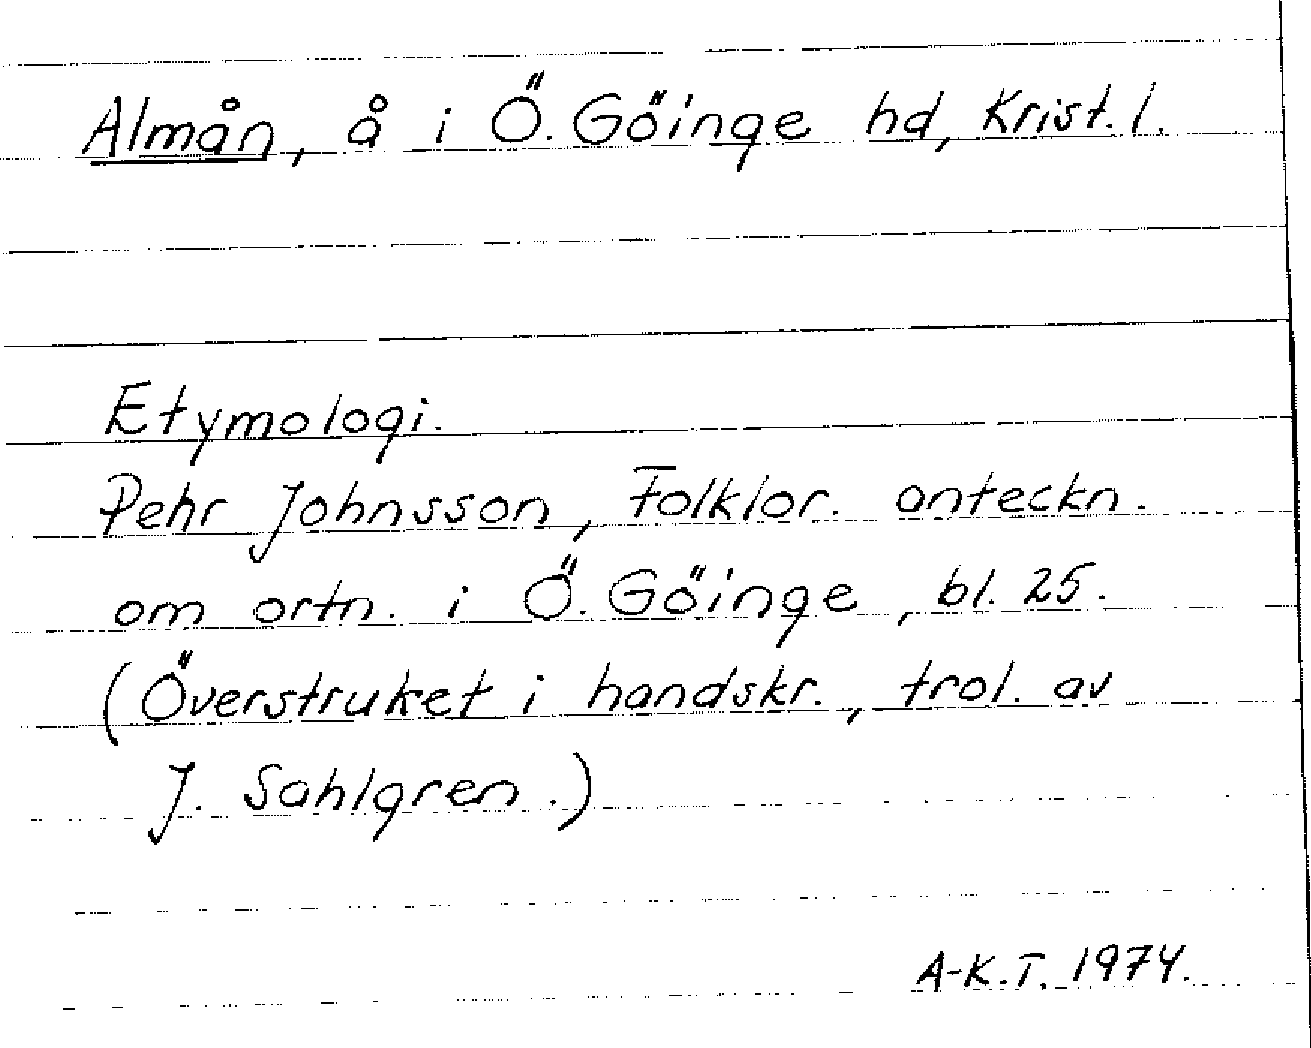 Almån, å i Ö. Göinge hd, Krist. l.
Etymologi.
Pehr Johnsson, Folklor. anteckn.
om ortn. i Ö. Göinge, bl. 25.
(Överstruket i handskr., trol. av
J. Sahlgren.)
A-K.T. 1974.